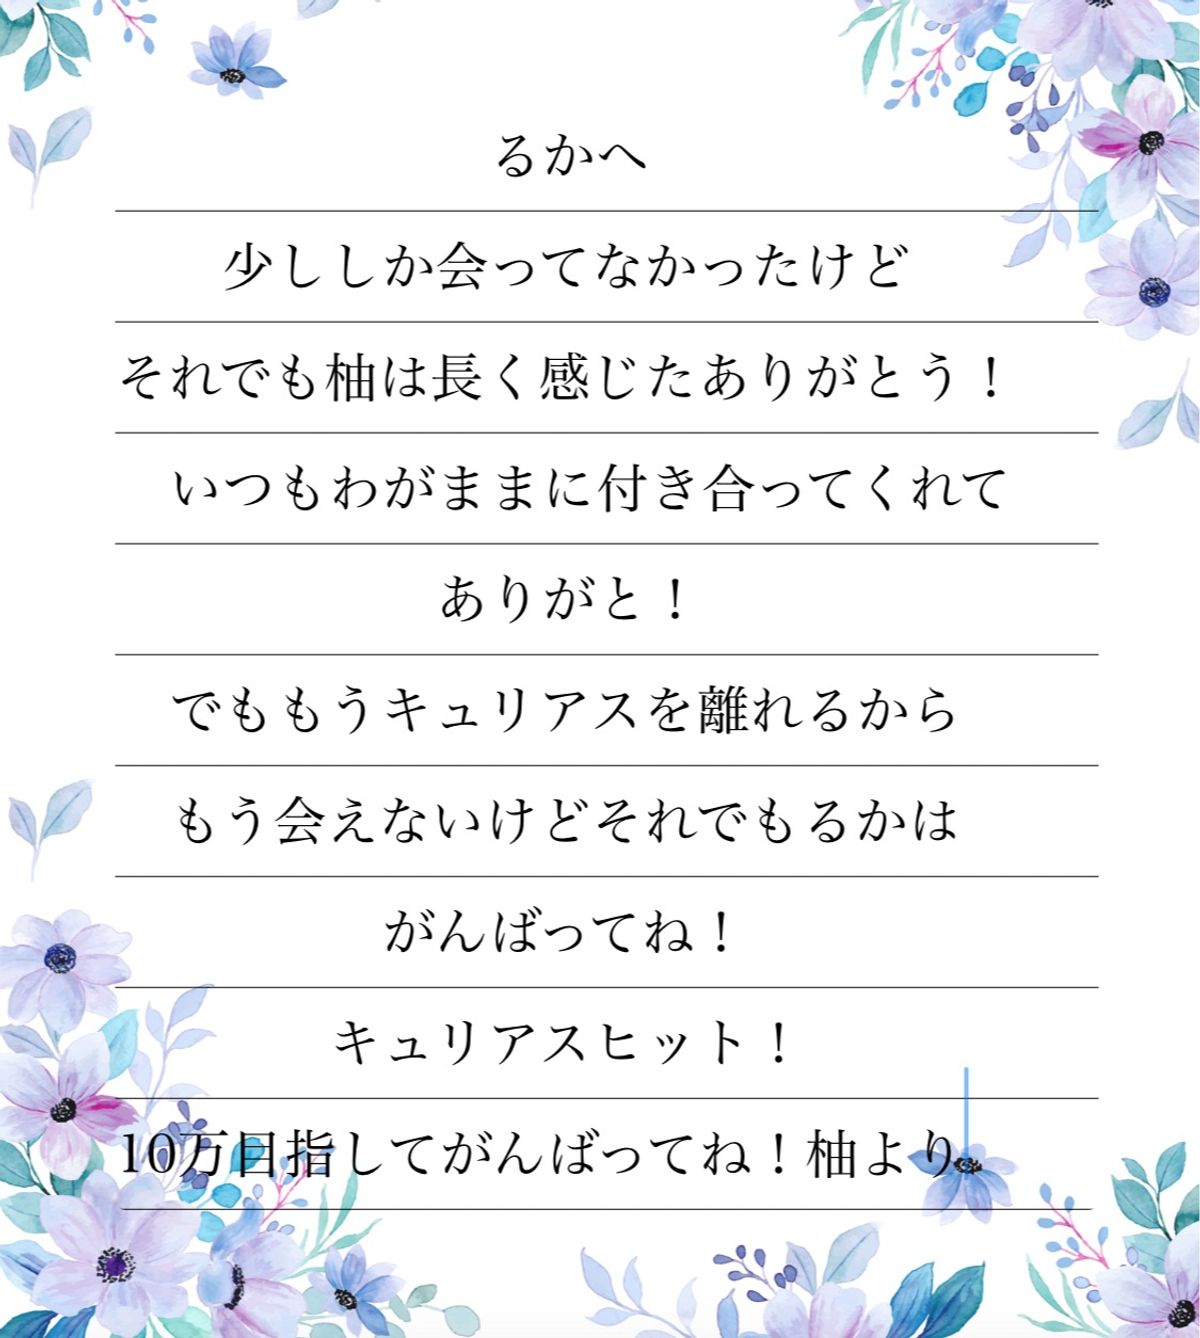 るかへ
少ししか会ってなかったけど
それでも柚は長く感じたありがとう！
いつもわがままに付き合ってくれて
ありがと！
でももうキュリアスを離れるから
もう会えないけどそれでもるかは
がんばってね！
キュリアスヒット！
10万目指してがんばってね！柚より